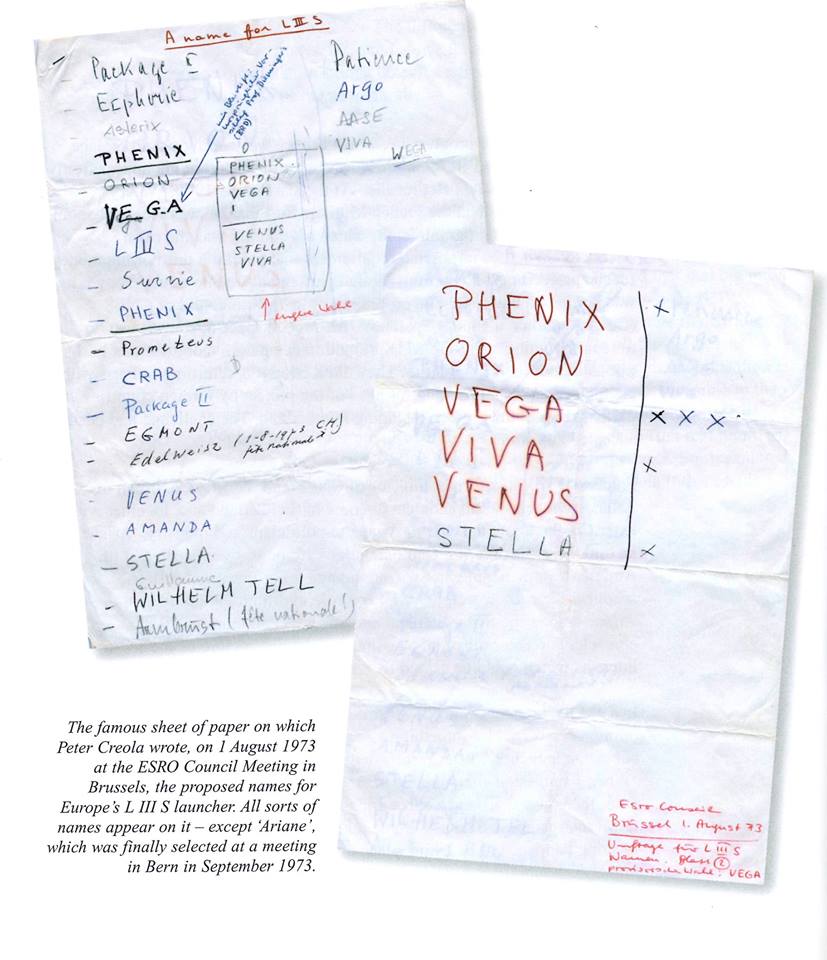 A name for L III S
Package I
Patience
Ecphorie
Argo
Asterix
AASE
PHENIX
VIVA
WEGA
ORION
VEGA
L III S
Survie
PHENIX
Prometeus
CRAB
Package II
EGMONT
Edelweisz (1-8-1973 CH)
fête nationale
VENUS
AMANDA
STELLA
Guillaume
WILHELM TELL
Armbrust (fête nationale!)
PHENIX
ORION
VEGA
VENUS
STELLA
VIVA
engere Wahl
PHENIX X
ORION
VEGA X X X
VIVA X
VENUS
STELLA X
ESRO Conseil
Brüssel 1. August 73
Umfrage für L III S
Namen. Blatt 2
provisorische Wahl: VEGA
The famous sheet of paper on which
Peter Creola wrote, on 1 August 1973
at the ESRO Council Meeting in
Brussels, the proposed names for
Europe's L III S launcher. All sorts of
names appear on it – except 'Ariane',
which was finally selected at a meeting
in Bern in September 1973.